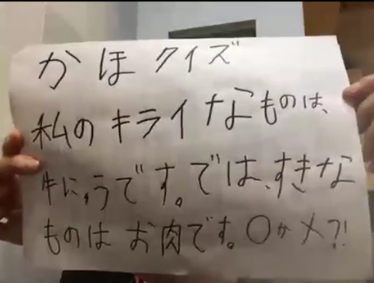 かほクイズ
私のキライなものは、
牛にゅうです。では、すきな
ものはお肉です。〇か×?!